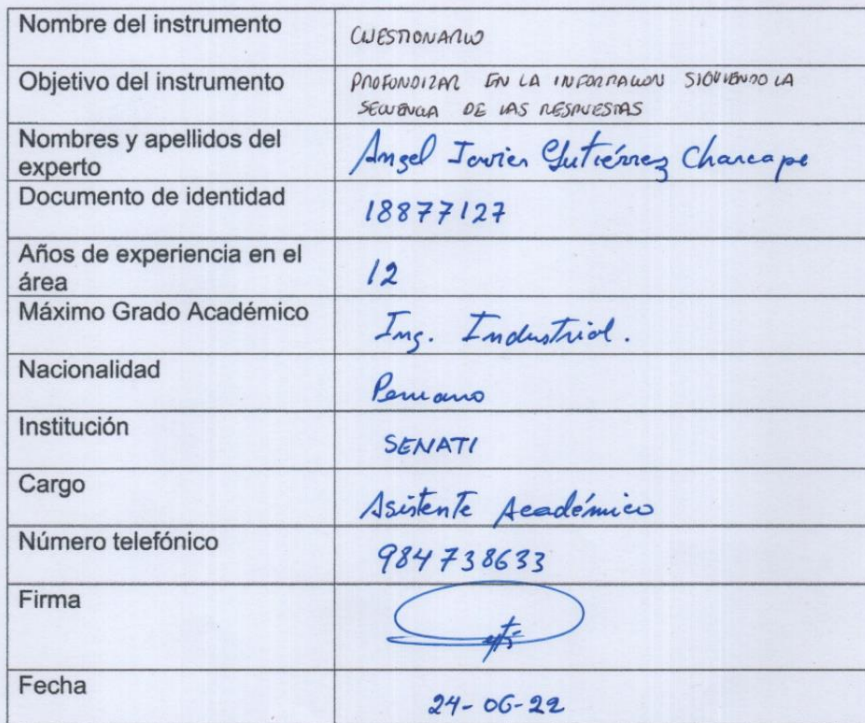 Nombre del instrumento
CUESTIONARIO
Objetivo del instrumento
PROFUNDIZAR EN LA INFORMACION SIGUIENDO LA
SECUENCIA DE LAS RESPUESTAS
Nombres y apellidos del
experto
Angel Javier Gutiérrez Charcape
Documento de identidad
18877127
Años de experiencia en el
área
12
Máximo Grado Académico
Ing. Industrial.
Nacionalidad
Peruano
Institución
SENATI
Cargo
Asistente Académico
Número telefónico
984738633
Firma
Fecha
24-06-22